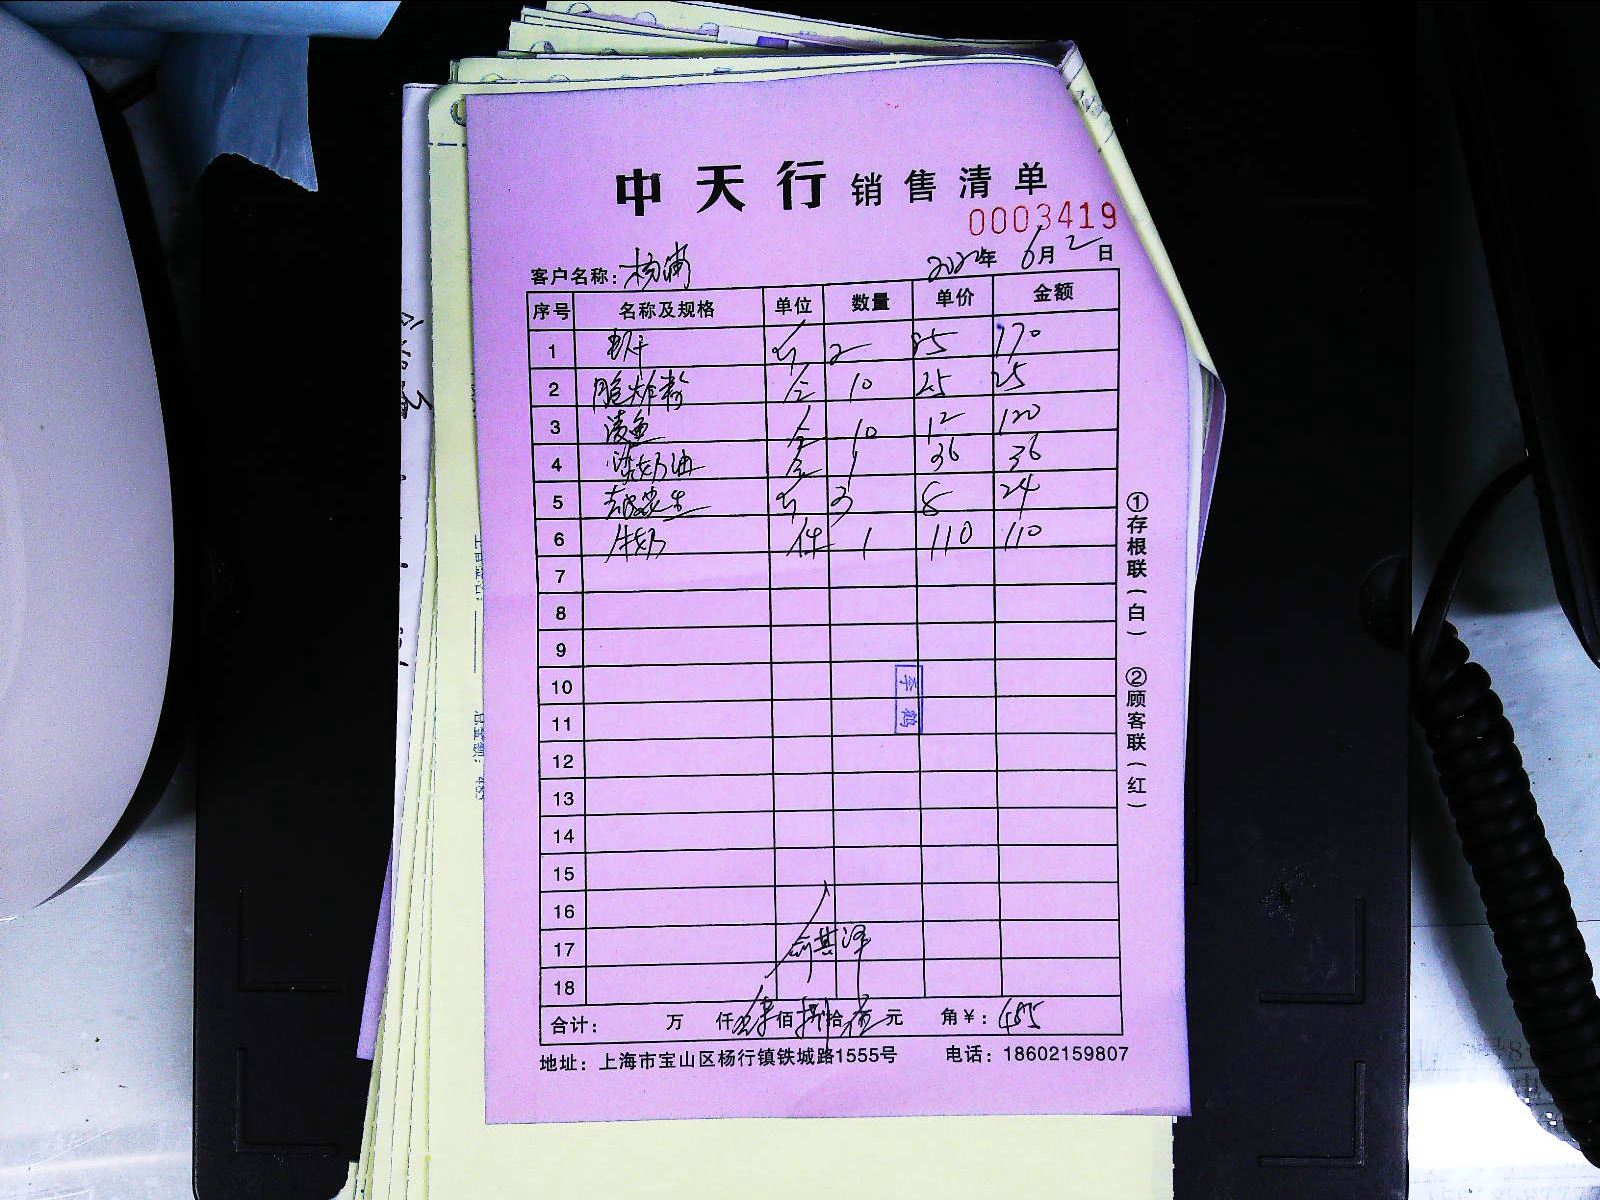 中天行销售清单
0003419
客户名称：杨浦 2022年6月2日
序号 名称及规格 单位 数量 单价 金额
1 2 85 170
2 脆炸粉 10 25 25
3 10 12 120
4 淡奶油 1 36 36
5 去皮花生 3 8 24
6 牛奶 件 1 110 110
7
8
9
10
11
12
13
14
15
16
17
18
合计： 万 仟 肆佰捌拾伍元 角￥：485
地址：上海市宝山区杨行镇铁城路1555号 电话：18602159807
①存根联（白） ②顾客联（红）